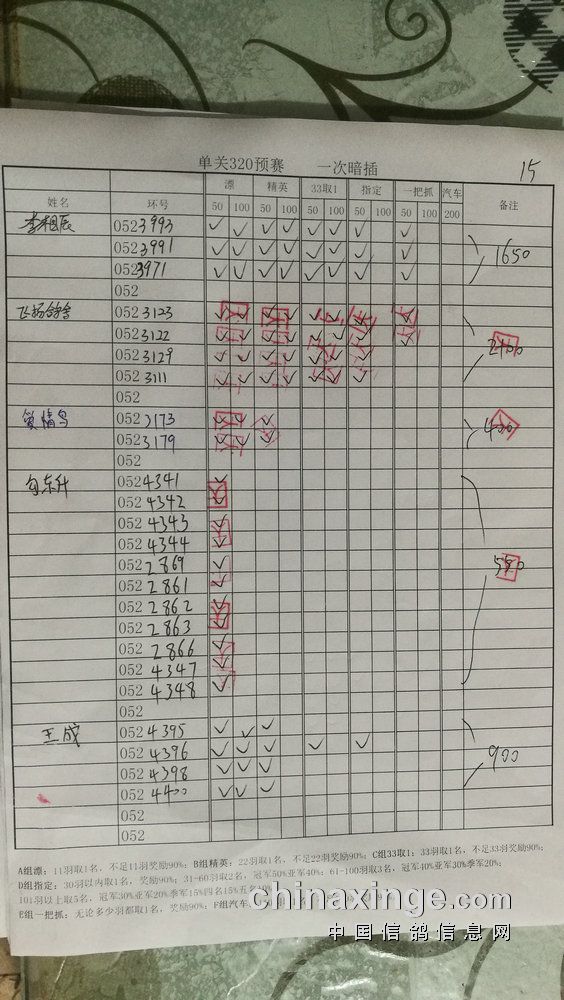 单关320预赛 一次暗插 15
姓名 环号 漂 精英 33取1 指定 一把抓 汽车 备注
50 100 50 100 50 100 50 100 50 100 200
0523993
0523991
0523971 1650
052
0523123
0523122
0523129
0523111
052
3179
052
0524341
0524342
0524343
0524344
0522869
0522861
0522862
0522863
0522866
0524347
0524348
052
王成 0524395
0524396
0524398 900
0524400
052
052
A组漂：11羽取1名，不足11羽奖励90%；B组精英：22羽取1名，不足22羽奖励90%；C组33取1：33羽取1名，不足33羽奖励90%；
D组指定：30羽以内取1名，奖励90%；31-60羽取2名，冠军50%亚军40%；61-100羽取3名，冠军40%亚军30%季军20%；
101羽以上取5名，冠军30%亚军20%季军15%四名15%五名
E组一把抓：无论多少羽都取1名，奖励90%；F组汽车：
chinaxinge.com
中国信鸽信息网